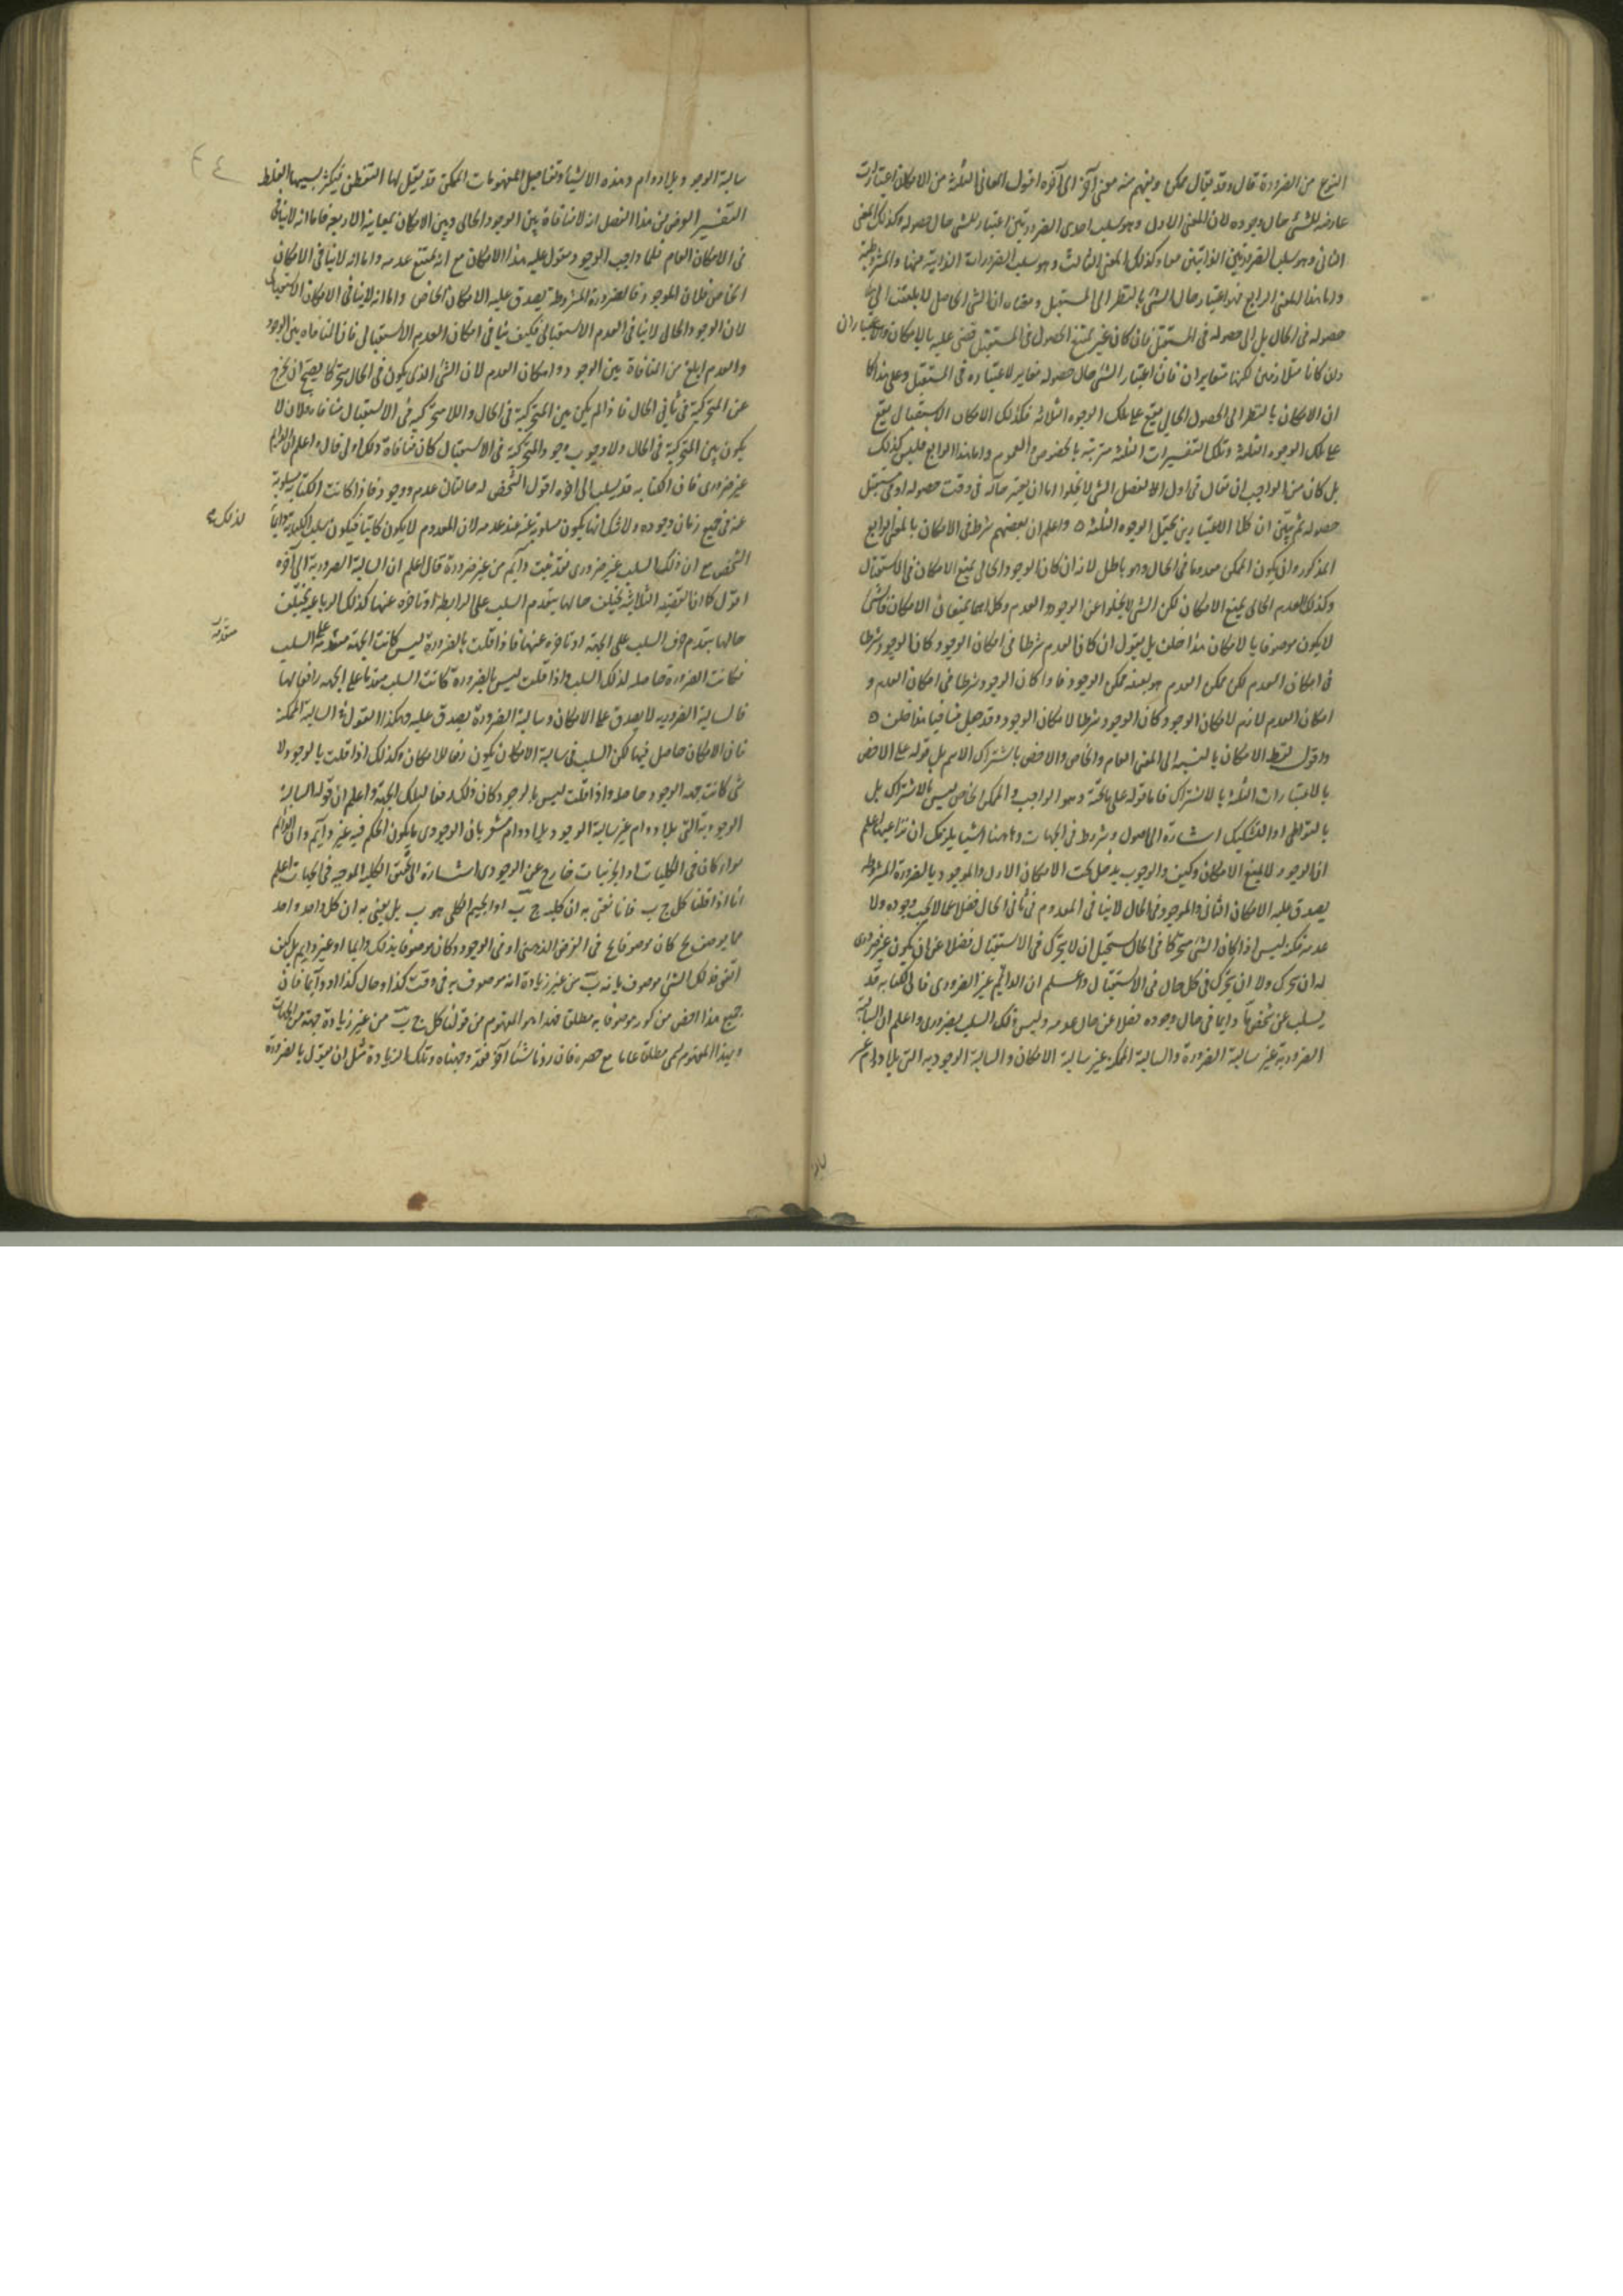 النوع من الضرورة قال وقد يقال ممكن ويفهم منه معنى آخر الى آخره اقول المعانى الثلثة من الامكان اعتبارات
عارضة للشئ حال وجوده لان المعنى الاول وهو سلب احدى الضرورتين اعتبار للشئ حال حصوله وكذلك المعنى
الثانى وهو سلب الضرورتين الذاتيتين معا وكذلك المعنى الثالث وهو سلب الضرورات الذاتية منها والمشروطة
واما هذا المعنى الرابع فهو اعتبار حال الشئ بالنظر الى المستقبل ومعناه ان الشئ الحاصل لا يلتفت الى
حصوله فى الحال بل الى حصوله فى المستقبل فان كان غير ممتنع الحصول فى المستقبل قضى عليه بالامكان والاعتباران
وان كانا متلازمين لكنهما متغايران فان اعتبار الشئ حال حصوله مغاير لاعتباره فى المستقبل وعلى هذا كما
ان الامكان بالنظر الى الحصول الحالى يقع على تلك الوجوه الثلاثة فكذلك الامكان الاستقبالى يقع
على تلك الوجوه الثلثة وتلك التفسيرات الثلثة مترتبة بالخصوص والعموم واما هذا الرابع فليس كذلك
بل كان من الواجب ان يقال فى اول الفصل الشئ لا يخلوا اما ان يعتبر حاله فى وقت حصوله او فى مستقبل
حصوله ثم يبين ان كلا الاعتبارين يحتمل الوجوه الثلثة واعلم ان بعضهم شرط فى الامكان بالمعنى الرابع
المذكور ان يكون الممكن معدوما فى الحال وهو باطل لانه ان كان الوجود الحالى يمنع الامكان فى الاستقبال
وكذلك العدم الحالى يمنع الامكان لكن الشئ لا يخلوا عن الوجود والعدم وكلاهما يمنعان الامكان فالشئ
لا يكون موصوفا بالامكان هذا خلف بل يقول ان كان العدم شرطا فى امكان الوجود وكان الوجود شرطا
فى امكان العدم لكن ممكن العدم هو بعينه ممكن الوجود فاذا كان الوجود شرطا فى امكان العدم و
امكان العدم لازم لامكان الوجود وكان الوجود شرطا لامكان الوجود وقد جعل منافيا هذا خلف
واقول لفظ الامكان بالنسبة الى المعنى العام والخاص والاخص باشتراك الاسم بل قوله على الاخص
بالاعتبارات الثلثة بالاشتراك فاما قوله على ما تحته وهو الواجب والممكن الخاص ليس بالاشتراك بل
بالتواطى او التشكيك اشارة الى اصول وشروط فى الجهات وهاهنا اشياء يلزمك ان تراعيها اعلم
ان الوجود لا يمنع الامكان وكيف والوجوب يدخل تحت الامكان الاول والموجود بالضرورة المشروطة
يصدق عليه الامكان الثانى والموجود فى الحال لا ينافى المعدوم فى ثانى الحال فضلا عما لا يجب وجوده ولا
عدمه فكونه ليس اذا كان الشئ متحركا فى الحال يستحيل ان لا يتحرك فى الاستقبال فضلا عن ان يكون غير ضرورى
له ان يتحرك ولا ان يتحرك فى كل حال فى الاستقبال واعلم ان الدايم غير الضرورى فان الكتابة قد
يسلب عن شخص ما دايما فى حال وجوده فضلا عن حال عدمه وليس ذلك السلب بضرورى واعلم ان السالبة
الضرورية غير سالبة الضرورة والسالبة الممكنة غير سالبة الامكان والسالبة الوجودية التى بلا دوام غير
سالبة الوجود بلا دوام وهذه الاشياء وتفاصيل المفهومات الممكن قد يقل لها التفطن فيكثر بسببها الغلط
التفسير الغرض من هذا الفصل انه لا منافاة بين الوجود الحالى وبين الامكان بمعانيه الاربعة فاما انه لا ينافى
فى الامكان العام فلما واجب الوجود مقول عليه هذا الامكان مع انه ممتنع عدمه واما انه لا ينافى الامكان
الخاص فلان الموجود بالضرورة المشروطة يصدق عليه الامكان الخاص واما انه لا ينافى الامكان الاستقبالى
لان الوجود الحالى لا ينافى العدم الاستقبالى فكيف ينافى امكان العدم الاستقبالى فان المنافاة بين الوجود
والعدم ابلغ من المنافاة بين الوجود وامكان العدم لان الشئ الذى يكون فى الحال متحركا يصح ان يخرج
عن المتحركية فى ثانى الحال فاذا لم يكن بين المتحركية فى الحال واللا متحركية فى الاستقبال منافاة فلان لا
يكون بين المتحركية فى الحال ولا وجوب وجود المتحركة فى الاستقبال كان منافاة ذلك اولى قال واعلم ان الدايم
غير ضرورى فان الكتابة قد يسلب الى آخره اقول الشخص له حالتان عدم ووجود فاذا كانت الكتابة مسلوبة
عنه فى جميع زمان وجوده ولا شك انها يكون مسلوبة عنه عند عدمه لان المعدوم لا يكون كاتبا فيكون سلب الكتابة دايما
لذلك
الشخص مع ان ذلك السلب غير ضرورى فقد ثبت دايم من غير ضرورة قال اعلم ان السالبة الضرورية الى آخره
اقول كما ان القضية الثلاثية تختلف حالها بتقدم السلب على الرابطة او تاخره عنها كذلك الرباعية تختلف
حالها بتقدم حرف السلب على الجهة او تاخره عنها فاذا قلت بالضرورة ليس كانت الجهة متقدمة على السلب
متقدمة
فكانت الضرورة حاصلة لذلك السلب واذا قلت ليس بالضرورة كانت السلب متقدما على الجهة رافعا لها
فالسالبة الضرورية لا يصدق على الامكان وسالبة الضرورة يصدق عليه وهكذا القول فى السالبة الممكنة
فان الامكان حاصل فيها لكن السلب فى سالبة الامكان يكون رفعا للامكان وكذلك اذا قلت بالوجود لا
شئ كانت جهة الوجود حاصلة واذا قلت ليس بالوجود كان ذلك رفعا لتلك الجهة واعلم ان قوله السالبة
الوجودية التى بلا دوام غير سالبة الوجود بلا دوام مشعر بان الوجودى ما يكون الحكم فيه غير دايم وان الدايم
سواء كان فى الكليات او الجزئيات خارج عن الوجودى اشارة الى تحقيق الكلية الموجبة فى الجهات اعلم
انا اذا قلنا كل ج ب فانا نعنى به ان كلية ج ب او الجيم الكلى هو ب بل يعنى به ان كل واحد واحد
مما يوصف بج كان موصوفا بج فى الفرض الذهنى او فى الوجود وكان موصوفا بذلك دايما او غير دايم بل كيف
اتفق فذلك الشئ موصوف بانه ب من غير زيادة انه موصوف به فى وقت كذا وحال كذا او دايما فان
جميع هذا اخص من كونه موصوفا به مطلقا فهذا هو المفهوم من قولنا كل ج ب من غير زيادة جهة من الجهات
وبهذا المفهوم يسمى مطلقا عاما مع حصره فان زدنا شيئا آخر فقد وجهناه وتلك الزيادة مثل ان يقول بالضرورة